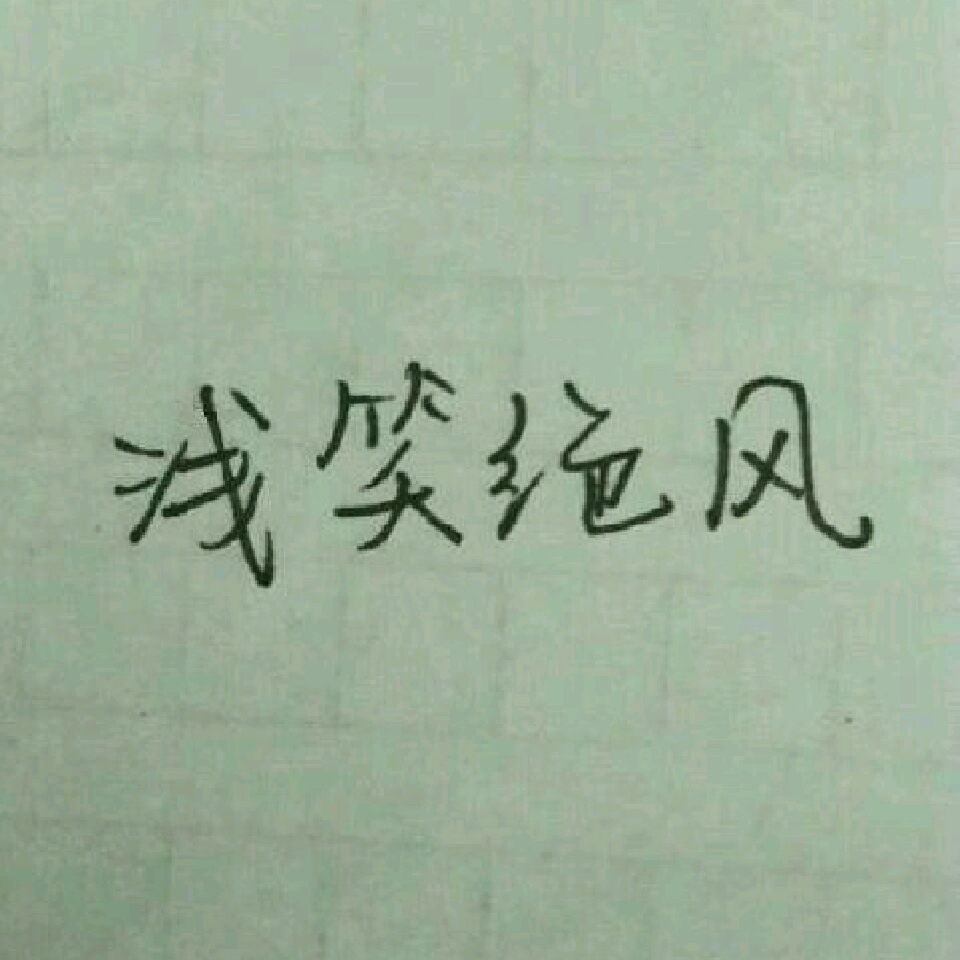 浅笑绝风